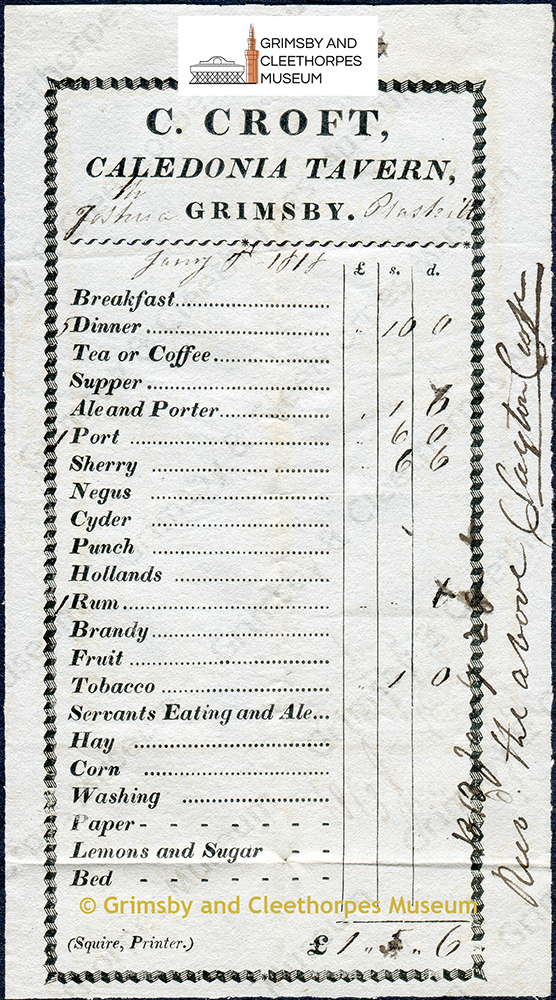 GRIMSBY AND
CLEETHORPES
MUSEUM
C. CROFT,
CALEDONIA TAVERN,
Joshua GRIMSBY. Plaskitt
Jany 1818
£ s. d.
Breakfast..............................
5 Dinner.............................. „ 10 0
Tea or Coffee......................
Supper..............................
Ale and Porter.................... „ 1 0
1 Port .............................. „ 6 0
Sherry .............................. „ 6 6
Negus ..............................
Cyder ..............................
Punch ..............................
Hollands ..........................
1 Rum..............................
Brandy..............................
Fruit ..............................
Tobacco .......................... „ 1 0
Servants Eating and Ale...
Hay ..............................
Corn ..............................
Washing ..........................
Paper - - - - - - -
Lemons and Sugar - -
Bed - - - - - - -
(Squire, Printer.) £ 1 „ 5 „ 6
the above Clayton Croft
© Grimsby and Cleethorpes Museum